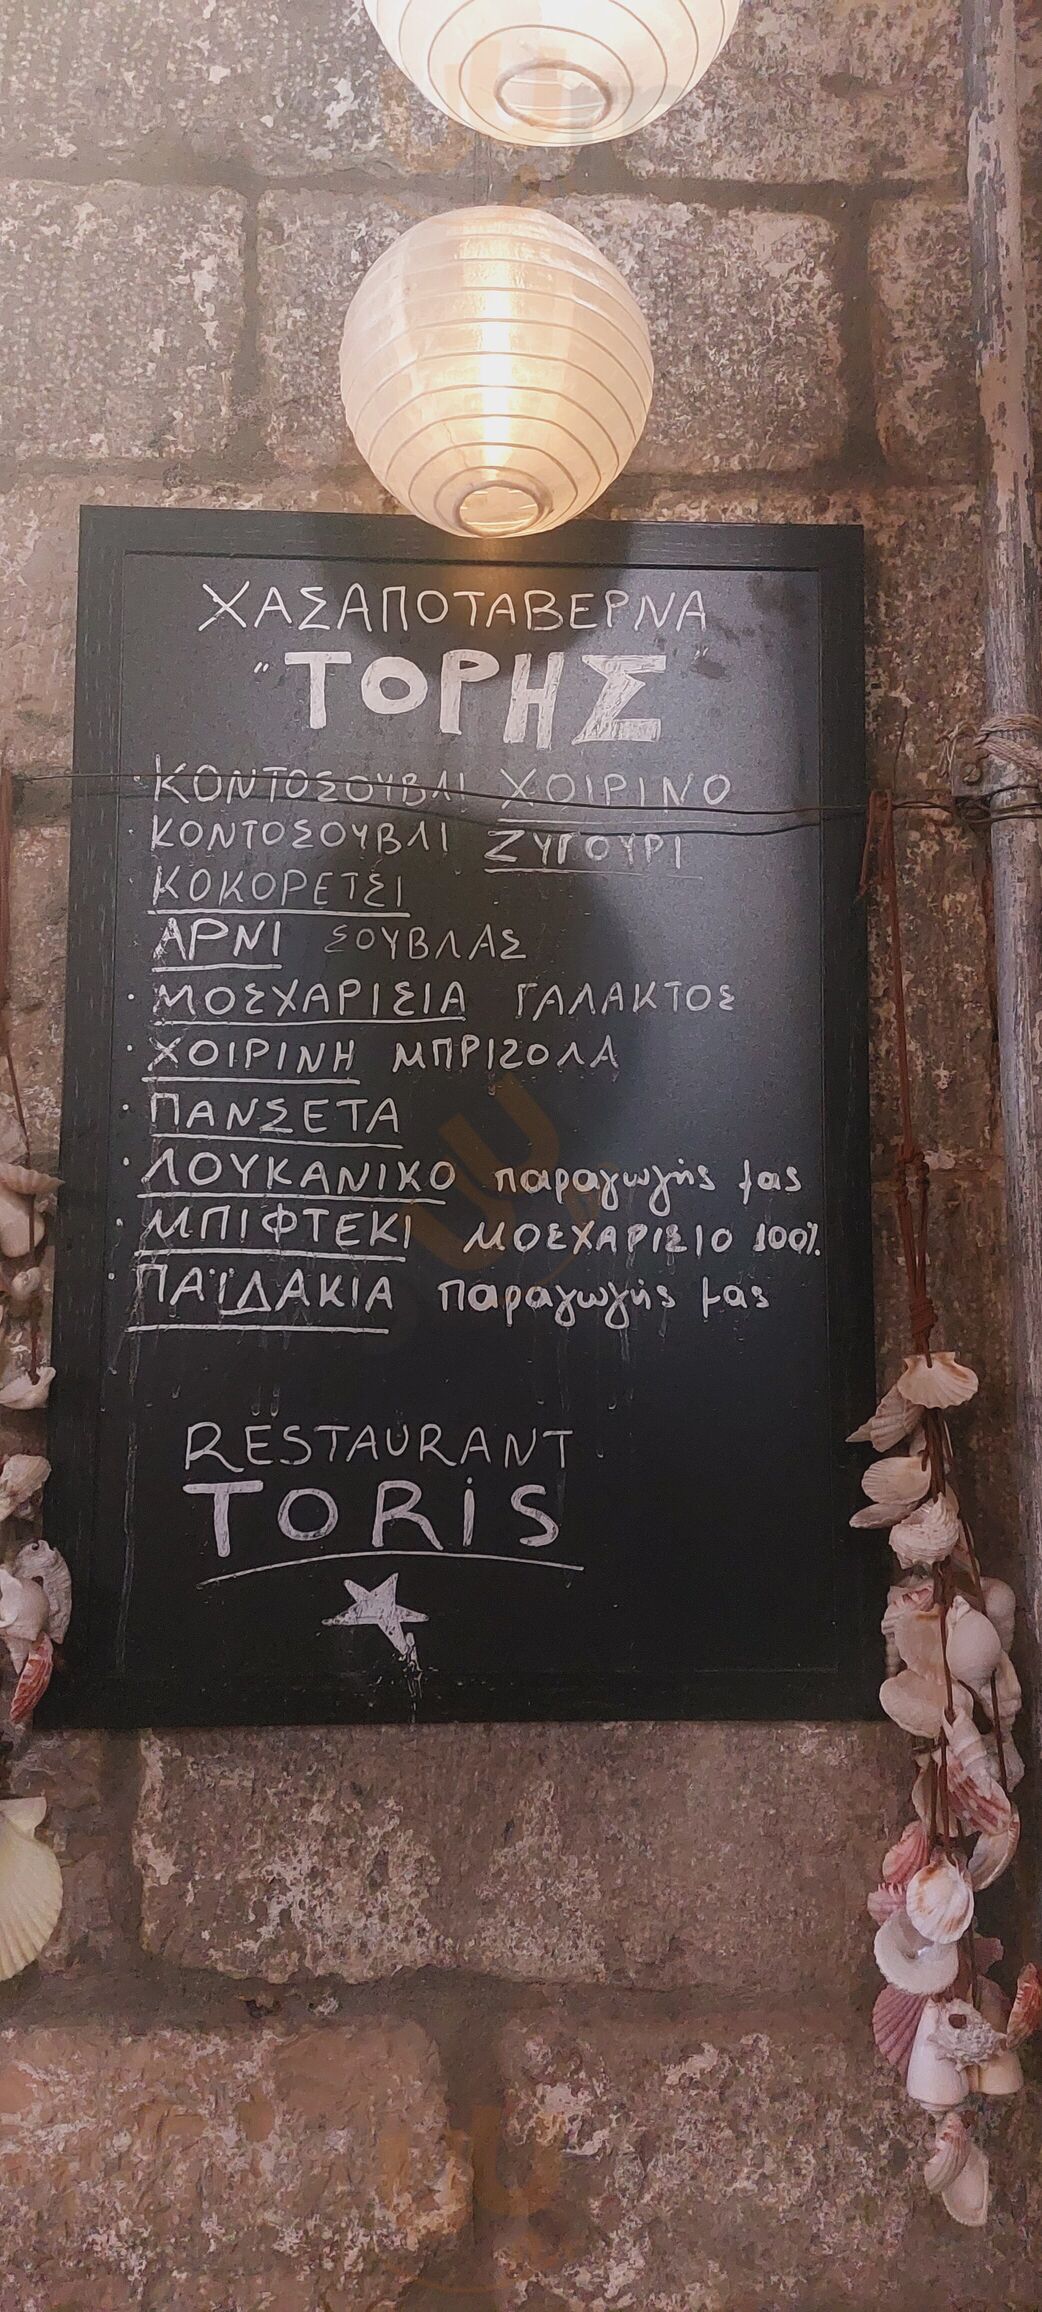 ΧΑΣΑΠΟΤΑΒΕΡΝΑ
"ΤΟΡΗΣ"
· ΚΟΝΤΟΣΟΥΒΛΙ ΧΟΙΡΙΝΟ
· ΚΟΝΤΟΣΟΥΒΛΙ ΖΥΓΟΥΡΙ
ΚΟΚΟΡΕΤΣΙ
ΑΡΝΙ ΣΟΥΒΛΑΣ
· ΜΟΣΧΑΡΙΣΙΑ ΓΑΛΑΚΤΟΣ
· ΧΟΙΡΙΝΗ ΜΠΡΙΖΟΛΑ
· ΠΑΝΣΕΤΑ
· ΛΟΥΚΑΝΙΚΟ παραγωγής μας
· ΜΠΙΦΤΕΚΙ ΜΟΣΧΑΡΙΣΙΟ 100%.
· ΠΑΪΔΑΚΙΑ παραγωγής μας
RESTAURANT
TORiS